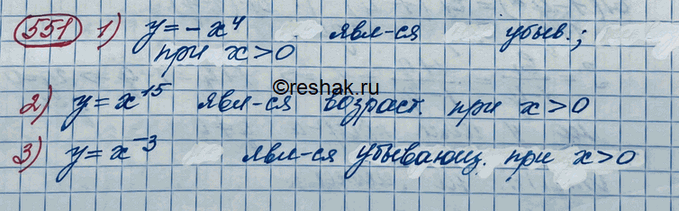 551 1) y = -x⁴ явл-ся убыв.;
при x > 0
©reshak.ru
2) y = x¹⁵ явл-ся возраст. при x > 0
3) y = x⁻³ явл-ся убывающ. при x > 0